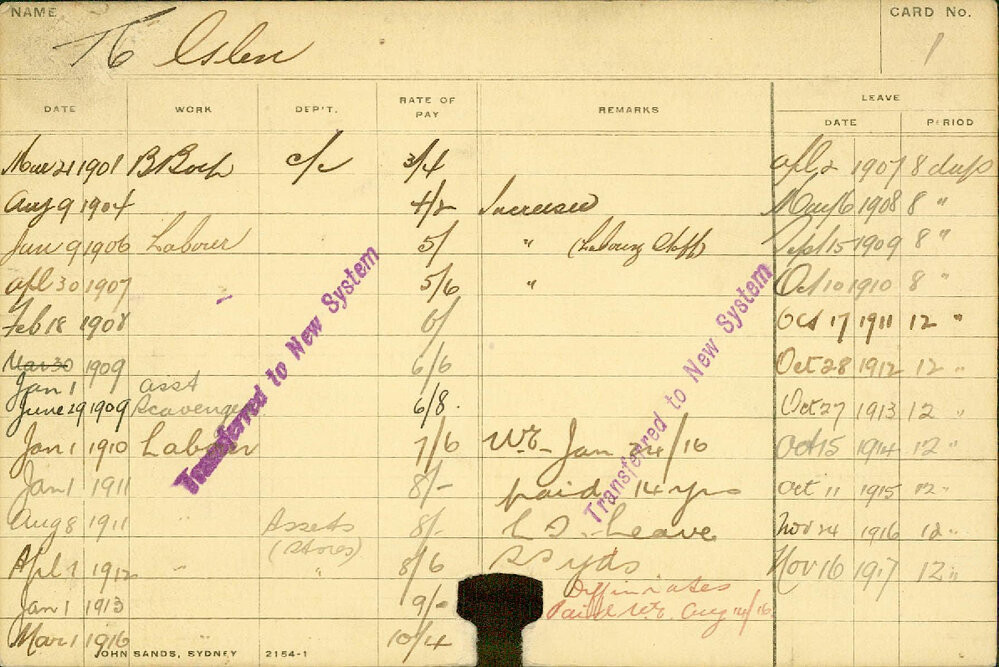 NAME
CARD No.
1
DATE WORK DEP'T. RATE OF PAY REMARKS LEAVE
DATE PERIOD
Mar 21 1901 c/c 3/4 Apl 2 1907 8 days
Aug 9 1904 4/2 Increased May 16 1908 8 "
Jan 9 1906 Labourer 5/ " Sept 15 1909 8 "
Apl 30 1907 5/6 " Oct 10 1910 8 "
Feb 18 1908 6/ Oct 17 1911 12 "
Mar 30 1909 6/6 Oct 28 1912 12 "
Jan 1 asst
June 29 1909 Scavenger 6/8 Oct 27 1913 12 "
Jan 1 1910 Labourer 7/6 Jan 24/16 Oct 15 1914 12 "
Jan 1 1911 8/- paid 14 yrs Oct 11 1915 12 "
Aug 8 1911 " Assets 8/- Leave Nov 24 1916 12 "
(Stores)
Apl 1 1912 " " 8/6 Nov 16 1917 12 "
Jan 1 1913 9/-
Paid Aug 14/16
Mar 1 1916 " 10/4
Transferred to New System
Transferred to New System
JOHN SANDS, SYDNEY 2154-1